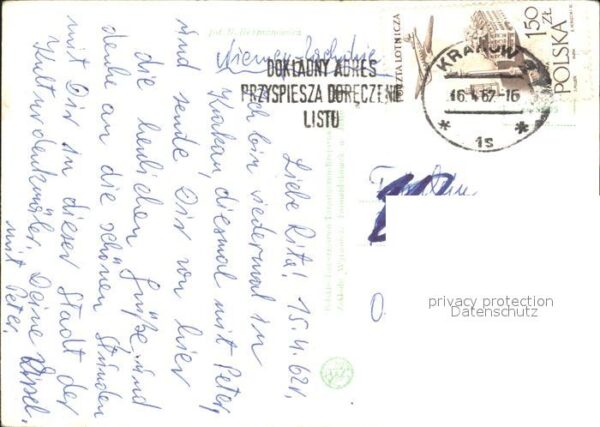 Fot. H. Hermanowicz
Niemcy Zachodnie
DOKŁADNY ADRES
PRZYSPIESZA DORĘCZENIE
LISTU
POCZTA LOTNICZA
1,50
ZŁ
POLSKA
KRAKÓW 2
16.4.62-16
* 1s *
Liebe Rita! 15. 4. 62r.
Ich bin wiedermal in
Krakau, diesmal mit Peter,
und sende Dir von hier
die herzlichen Grüße und
denke an die schönen Stunden
mit Dir in dieser Stadt der
Kulturdenkmäler. Deine
mit Peter.
privacy protection
Datenschutz